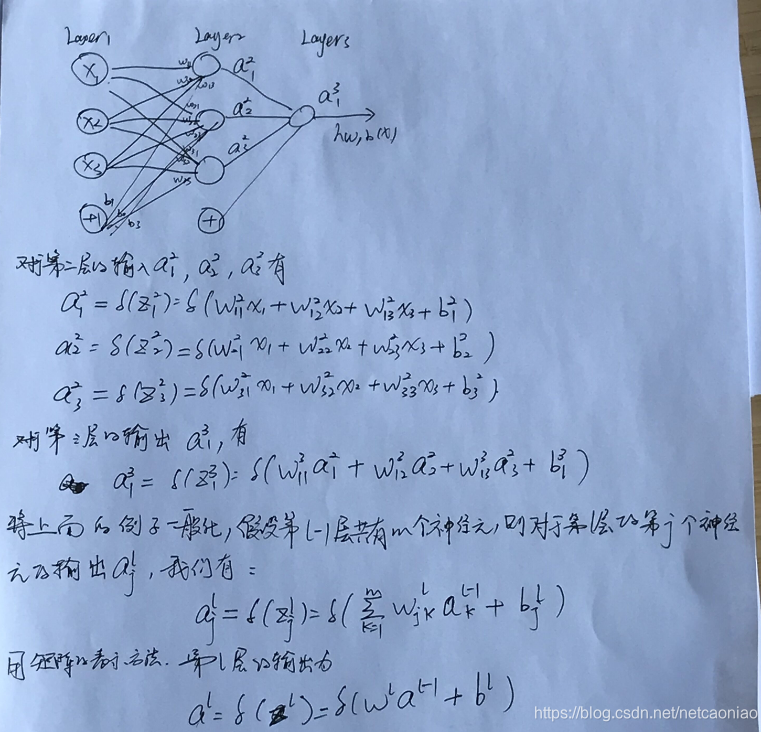 Layer1 Layer2 Layer3
x₁ w₁₁ a₁²
x₂ a₂² a₁³
h w,b(x)
x₃ a₃²
+1 b₁ b₃ +1
对于第二层的输入 a₁², a₂², a₃² 有
a₁² = δ(z₁²) = δ(w₁₁²x₁ + w₁₂²x₂ + w₁₃²x₃ + b₁²)
a₂² = δ(z₂²) = δ(w₂₁²x₁ + w₂₂²x₂ + w₂₃²x₃ + b₂²)
a₃² = δ(z₃²) = δ(w₃₁²x₁ + w₃₂²x₂ + w₃₃²x₃ + b₃²)
对于第三层的输出 a₁³, 有
a₁³ = δ(z₁³) = δ(w₁₁³a₁² + w₁₂³a₂² + w₁₃³a₃² + b₁³)
将上面的例子一般化, 假设第l-1层共有m个神经元, 则对于第l层的第j个神经
元的输出 aⱼˡ, 我们有:
aⱼˡ = δ(zⱼˡ) = δ(∑ₖ₌₁ᵐ wⱼₖˡ aₖˡ⁻¹ + bⱼˡ)
用矩阵的表示方法. 第l层的输出为
aˡ = δ(zˡ) = δ(wˡaˡ⁻¹ + bˡ)
https://blog.csdn.net/netcaoniao